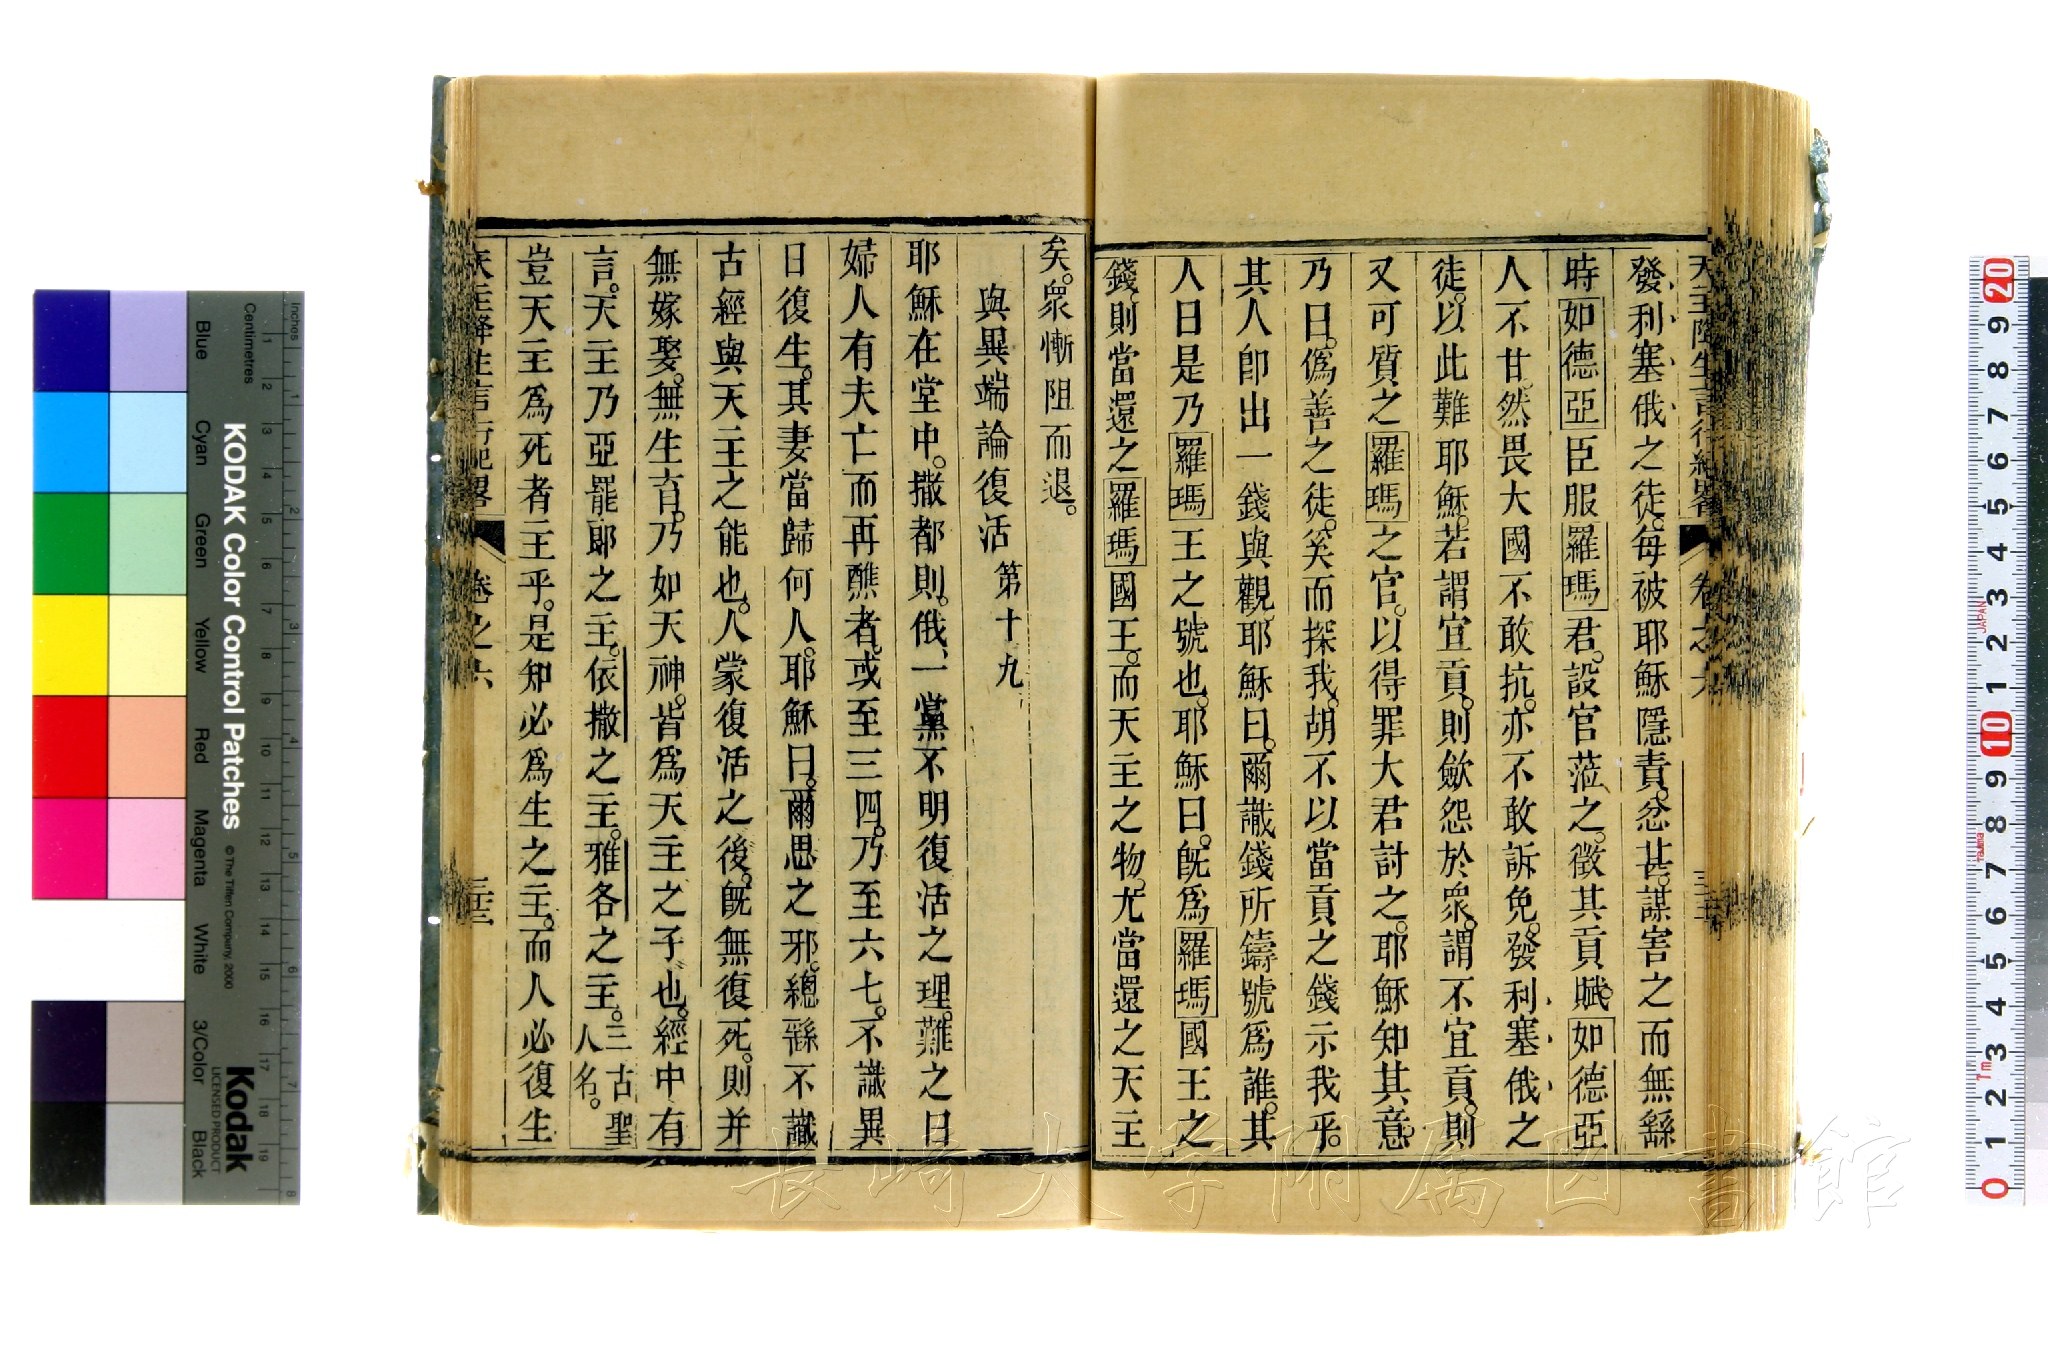 天主降生言行紀畧 卷之六
發利塞俄之徒。每被耶穌隱責。忿甚。謀害之而無繇
時如德亞臣服羅瑪君。設官蒞之。徵其貢賦。如德亞
人不甘。然畏大國不敢抗。亦不敢訴免。發利塞俄之
徒。以此難耶穌。若謂宜貢。則歛怨於衆。謂不宜貢。則
又可質之羅瑪之官。以得罪大君討之。耶穌知其意。
乃曰。僞善之徒。奚而探我。胡不以當貢之錢示我乎。
其人卽出一錢與觀。耶穌曰。爾識錢所鑄號爲誰。其
人曰是乃羅瑪王之號也。耶穌曰。旣爲羅瑪國王之
錢。則當還之羅瑪國王。而天主之物。尤當還之天主
矣。衆慚阻而退。
與異端論復活 第十九
耶穌在堂中。撒都則。俄。一黨不明復活之理。難之曰
婦人有夫亡而再醮者。或至三四。乃至六七。不識異
日復生。其妻當歸何人。耶穌曰。爾思之邪。總繇不識
古經與天主之能也。人蒙復活之後。旣無復死。則并
無嫁娶。無生育。乃如天神。皆爲天主之子也。經中有
言。天主乃亞罷郎之主。依撒之主。雅各之主。三古聖人名。
豈天主爲死者主乎。是知必爲生之主。而人必復生
天主降生言行紀畧 卷之六
KODAK Color Control Patches
© The Tiffen Company, 2000
Kodak
LICENSED PRODUCT
Inches
Centimetres
Blue
Cyan
Green
Yellow
Red
Magenta
White
3/Color
Black
JAPAN
長崎大学附属図書館